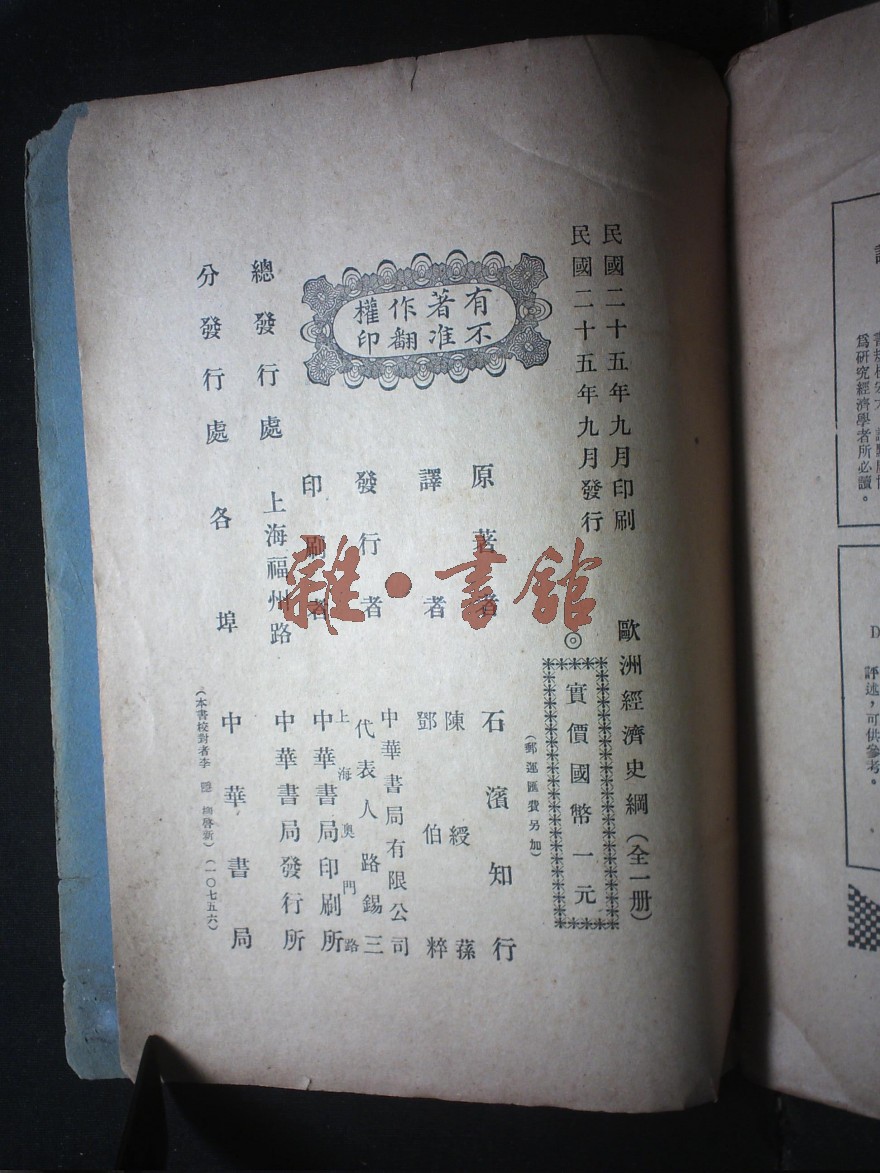 民國二十五年九月印刷
民國二十五年九月發行
歐洲經濟史綱(全一册)
◎實價國幣一元
(郵運匯費另加)
有不
著准
作翻
權印
原著者 石濱知行
譯者 陳綬蓀
鄧伯粹
發行者 中華書局有限公司
代表人路錫三
印刷者 上海奧門路
中華書局印刷所
總發行處 上海福州路 中華書局發行所
分發行處 各埠 中華書局
(本書校對者李 啓新)(一〇七五六)
雜·書館
爲研究經濟學者所必讀。
評述,可供參考。